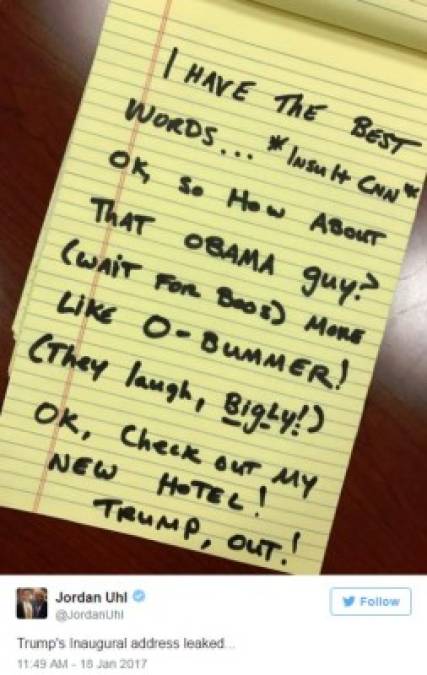 I HAVE THE BEST
WORDS... *INSULT CNN*
OK, SO HOW ABOUT
THAT OBAMA guy?
(WAIT FOR BOOS) MORE
LIKE O-BUMMER!
(They laugh, BigLy!)
OK, CHECK OUT MY
NEW HOTEL!
TRUMP, OUT!
Jordan Uhl
@JordanUhl
Follow
Trump's Inaugural address leaked...
11:49 AM - 18 Jan 2017